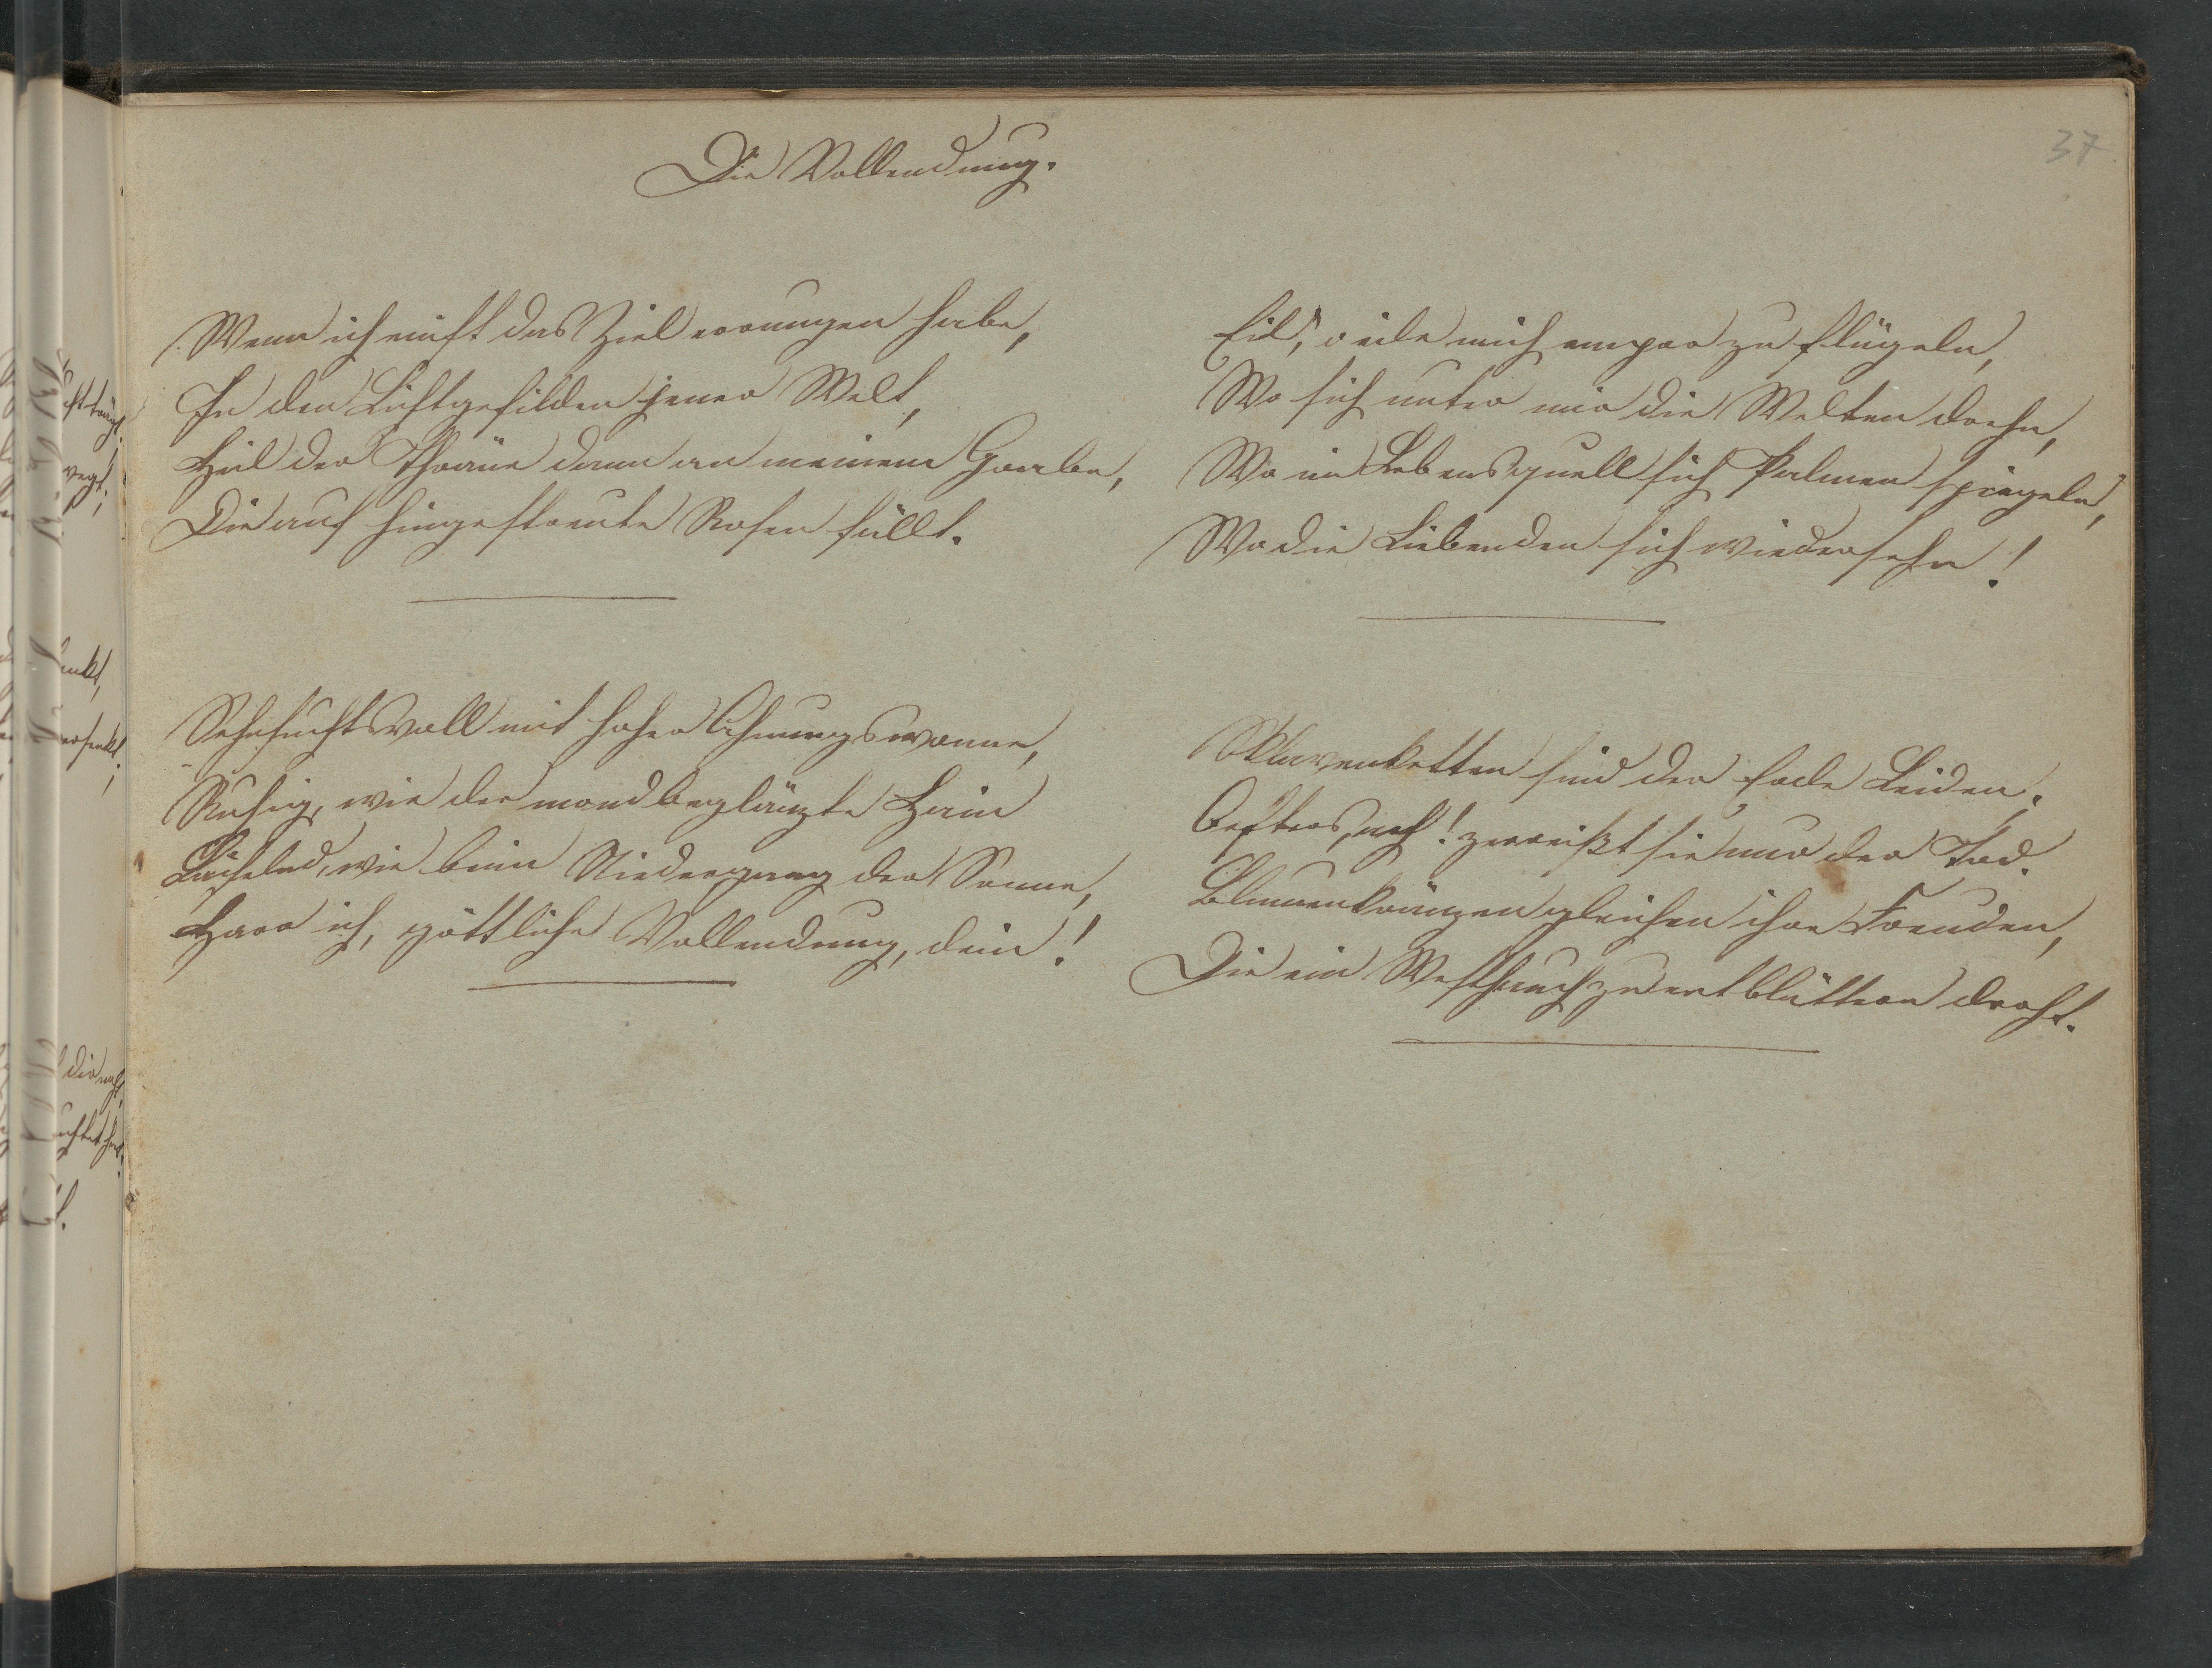 37
Die Vollendung.
Wenn ich einst das Ziel errungen habe,
In den Lichtgefilden jener Welt,
Heil der Thräne dann an meinem Grabe,
Die auf hingestreute Rosen fällt.
Sehnsuchtsvoll mit hoher Ahnungswonne,
Ruhig, wie der mondbeglänzte Hain
Lächelnd, wie beim Niedergang der Sonne,
Harr ich, göttliche Vollendung, dein!
Eil', o eile mich empor zu flügeln,
Wo sich unter mir die Welten drehn,
Wo im Lebensquell sich Palmen spiegeln,
Wo die Liebenden sich wiedersehn!
Sklavenketten sind der Erde Leiden;
Oefters, ach! zerreißt sie nur der Tod.
Blumenkränzen gleichen ihre Freuden,
Die ein Westhauch zu entblättern droht.